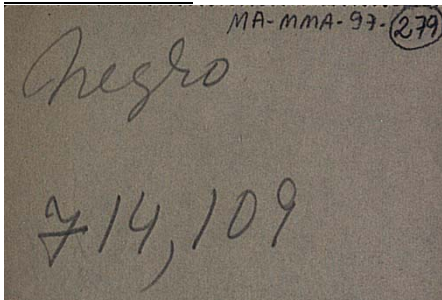 MA-MMA-97-279
negro
714,109